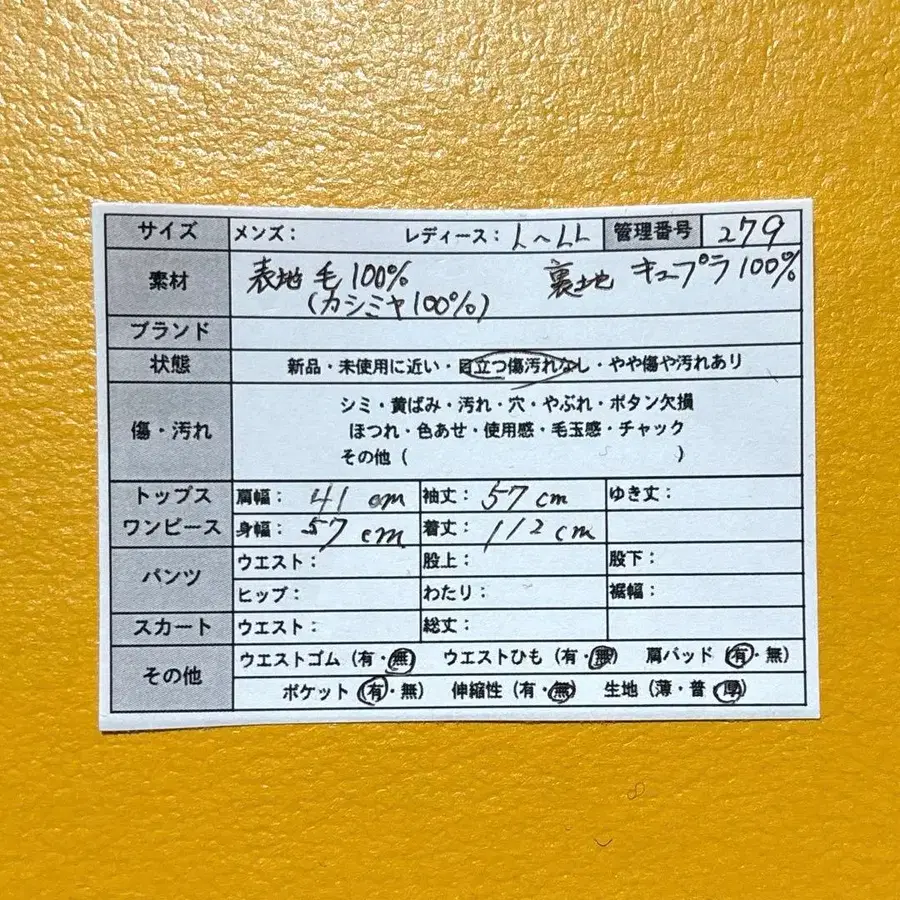 サイズ メンズ: レディース: L~LL 管理番号 279
素材 表地 毛100% 裏地 キュプラ100%
(カシミヤ100%)
ブランド
状態 新品・未使用に近い・目立つ傷汚れなし・やや傷や汚れあり
シミ・黄ばみ・汚れ・穴・やぶれ・ボタン欠損
傷・汚れ ほつれ・色あせ・使用感・毛玉感・チャック
その他( )
トップス 肩幅: 41cm 袖丈: 57cm ゆき丈:
ワンピース 身幅: 57cm 着丈: 112cm
パンツ ウエスト: 股上: 股下:
ヒップ: わたり: 裾幅:
スカート ウエスト: 総丈:
その他 ウエストゴム(有・無) ウエストひも(有・無) 肩パッド(有・無)
ポケット(有・無) 伸縮性(有・無) 生地(薄・普・厚)